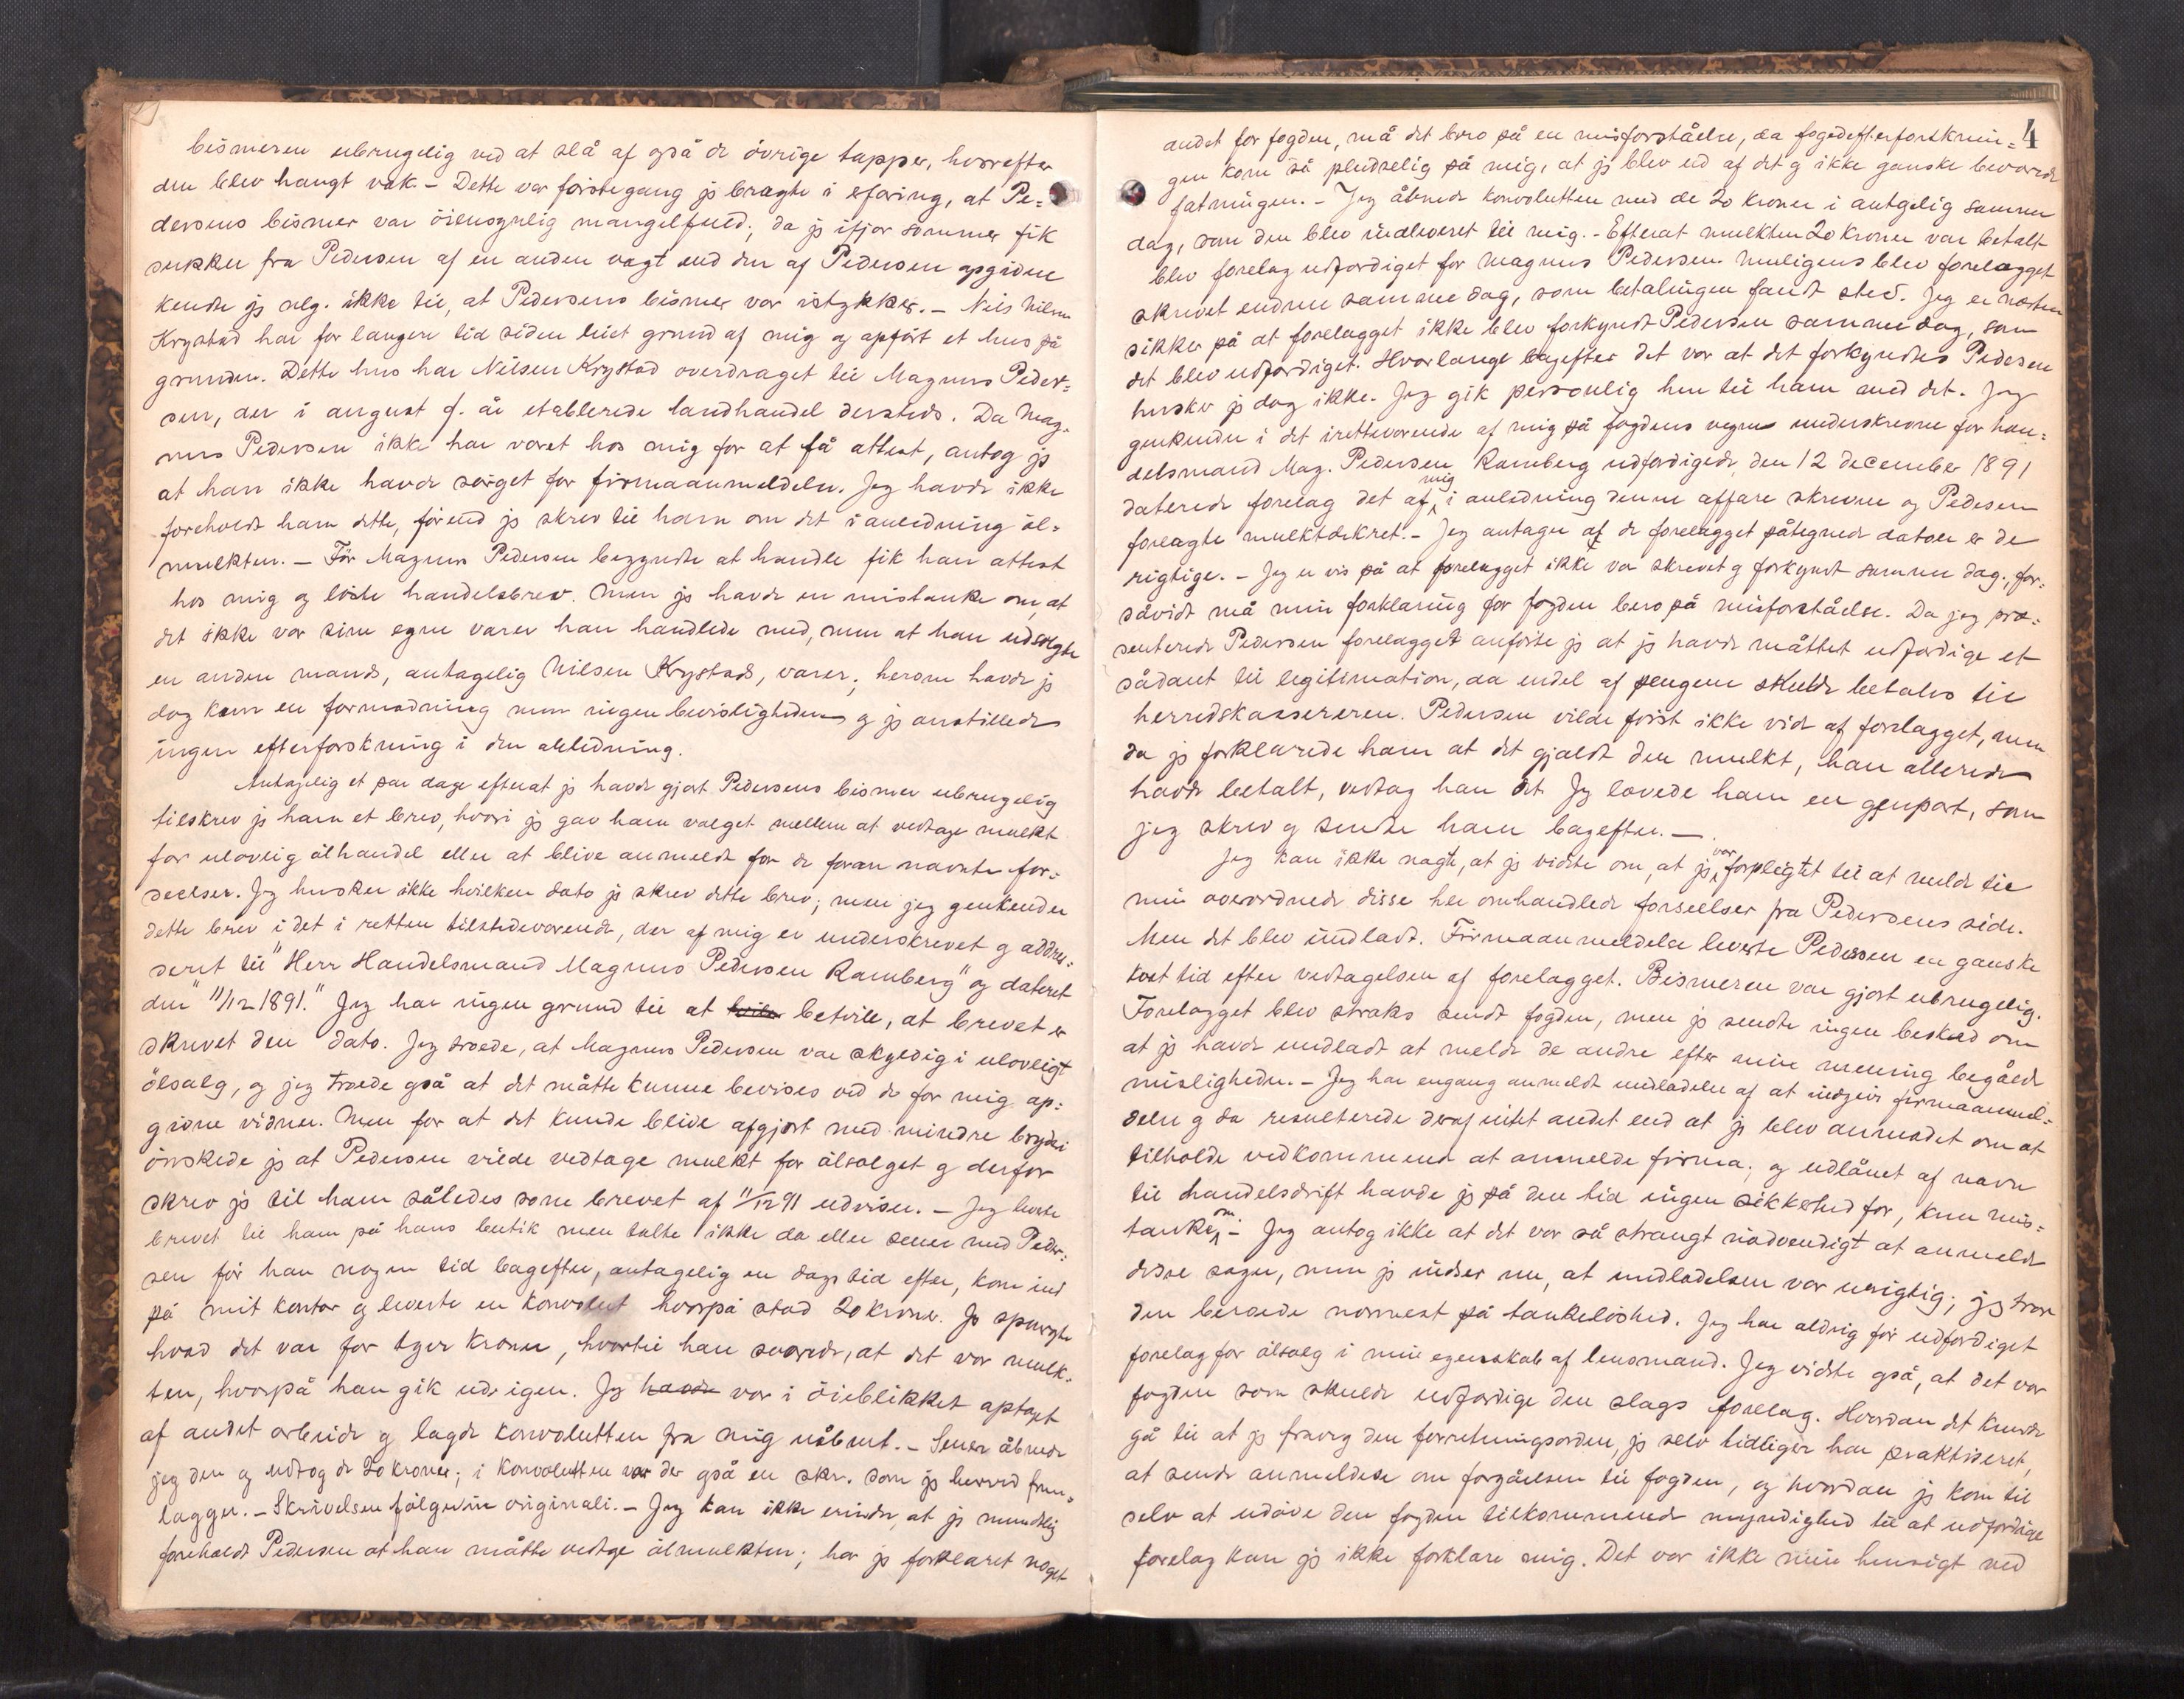 bismeren ubrugelig ved at slå af også de övrige tapper, hvorefter
den blev hængt væk. – Dette var förstegang jg bragte i efaring, at Pe=
dersens bismer var öiensynlig mangelfuld; da jg ifjor sommer fik
sukker fra Pedersen af en anden vægt end den af Pedersen opgivne
kendte jg slg. ikke til, at Pedersens bismer var istykker. – Nils Nilsen
Krystad har for længere tid siden leiet grund af mig og opfört et hus på
grunden. Dette hus har Nilsen Krystad overdraget til Magnus Peder=
sen, der i august f. år etablerede landhandel dersteds. Da Mag=
nus Pedersen ikke har været hos mig for at få attest, antog jg
at han ikke havde sörget for firmaanmeldeln. Jeg havde ikke
foreholdt ham dette, förend jg skrev til ham om det i anledning öl=
mulkten. – För Magnus Pedersen begyndte at handle fik han attest
hos mig og löste handelsbrev. Men jg havde en mistanke om, at
det ikke var sine egne varer han handlede med, men at han udsolgte
en anden mands, antagelig Nilsen Krystads, varer; herom havde jg
dog kun en formodning men ingen bevisligheder og jg anstillede
ingen efterforskning i den anledning.
Antagelig et par dage efterat jg havde gjort Pedersens bismer ubrugelig
tilskrev jg ham et brev, hvori jg gav ham valget mellem at vedtage mulkt
for ulovlig ölhandel eller at blive anmeldt for de foran nævnte for=
seelser. Jeg husker ikke hvilken dato jg skrev dette brev; men jeg genkender
dette brev i det i retten tilstedeværende, der af mig er underskrevet og addres=
seret til "Herr Handelsmand Magnus Pedersen Ramberg" og dateret
den "11/12 1891." Jeg har ingen grund til at betvile, at brevet er
skrevet den dato. Jeg troede, at Magnus Pedersen var skyldig i uloveligt
ölsalg, og jeg troede også at det måtte kunne bevises ved de for mig op=
givne vidner. Men for at det kunde blive afgjort med mindre bryderi
önskede jg at Pedersen vilde vedtage mulkt for ölsalget og derfor
skrev jg til ham således som brevet af 11/12 91 udviser. – Jeg leverte
brevet til ham på hans butik men talte ikke da eller senere med Peder=
sen för han nogen tid bagefter, antagelig en dags tid efter, kom ind
på mit kontor og leverte en konvolut hvorpå stod 20 kroner. Jg spurgte
hvad det var for tyve kroner, hvortil han svarede, at det var mulk=
ten, hvorpå han gik ud igen. Jg havde var i öieblikket optaget
af andet arbeide og lagde konvolutten fra mig uåbnet. – Senere åbnede
jeg den og udtog de 20 kroner; i konvolutten var der også en skr. som jg herved frem=
lægger. – Skrivelsen fölger in originali. – Jeg kan ikke erindre, at jg mundtlig
foreholdt Pedersen at han måtte vedtge ölmulkten; har jg forklaret noget
4
andet for fogden, må det bero på en misforståelse, da fogedefterforsknin=
gen kom så pludselig på mig, at jg blev ud af det og ikke ganske bevarede
fatningen. – Jeg åbnede konvolutten med de 20 kroner i antgelig samme
dag, som den blev indleveret til mig. – Efterat mulkten 20 kroner var betalt
blev forelæg udfærdiget for Magnus Pedersen. Muligens blev forelægget
skrevet endnu samme dag, som betalingen fandt sted. Jeg er næsten
sikker på at forelægget ikke blev forkyndt Pedersen samme dag, som
det blev udfærdiget. Hvorlænge bagefter det var at det forkyndtes Pedersen
husker jg dog ikke. Jeg gik personlig hen til ham med det. Jeg
genkender i det iretteværende af mig på fogdens vegne underskrevne for han=
delsmand Mag. Pedersen, Ramberg udfærdigede, den 12 december 1891
daterede forelæg det af mig i anledning denne affære skrevne og Pedersen
forelagte mulktdekret. – Jeg antager at de forelægget påtegnede datoer er de
rigtige. – Jeg er vis på at forelægget ikke var skrevet og forkyndt samme dag; for=
såvidt må min forklaring for fogden bero på misforståelse. Da jeg præ=
senterede Pedersen forelægget anförte jg at jg havde måttet udfærdige et
sådant til legitimation, da endel af pengene skulde betales til
herredskassereren. Pedersen vilde först ikke vide af forelægget, men
da jg forklarede ham at det gjaldt den mulkt, han allerede
havde betalt, vedtog han det. Jg lovede ham en genpart, som
jeg skrev og sendte ham bagefter. –
Jeg kan ikke nægte, at jg vidste om, at jg var forpligtet til at melde til
min overordnede disse her omhandlede forseelser fra Pedersens side.
Men det blev undladt. Firmaanmeldelse leverte Pedersen en ganske
kort tid efter vedtagelsen af forelægget. Bismeren var gjort ubrugelig.
Forelægget blev straks sendt fogden, men jg sendte ingen besked om
at jg havde undladt at melde de andre efter min mening begåede
misligheder. – Jeg har engang anmeldt undladelse af at indgive firmaanmel=
deln og da resulterede deraf intet andet end at jg blev anmodet om at
tilholde vedkommende at anmelde firma; og udlånet af navn
til handelsdrift havde jg på den tid ingen sikkerhed for, kun mis=
tanke om. – Jeg antog ikke at det var så strængt nödvendigt at anmelde
disse sager, men jg indser nu, at undladelsen var urigtig; jg tror
den beroede nærmest på tankelöshed. Jeg har aldrig för udfærdiget
forelæg for ölsalg i min egenskab af lensmand. Jeg vidste også, at det var
fogden som skulde udfærdige den slags forelæg. Hvordan det kunde
gå til at jg fraveg den forretningsorden, jg selv tidligere har praktiseret,
at sende anmeldelse om forgåelsen til fogden, og hvordan jg kom til
selv at udöve den fogden tilkommende myndighed til at udfærdige
forelæg kan jg ikke forklare mig. Det var ikke min hensigt ved